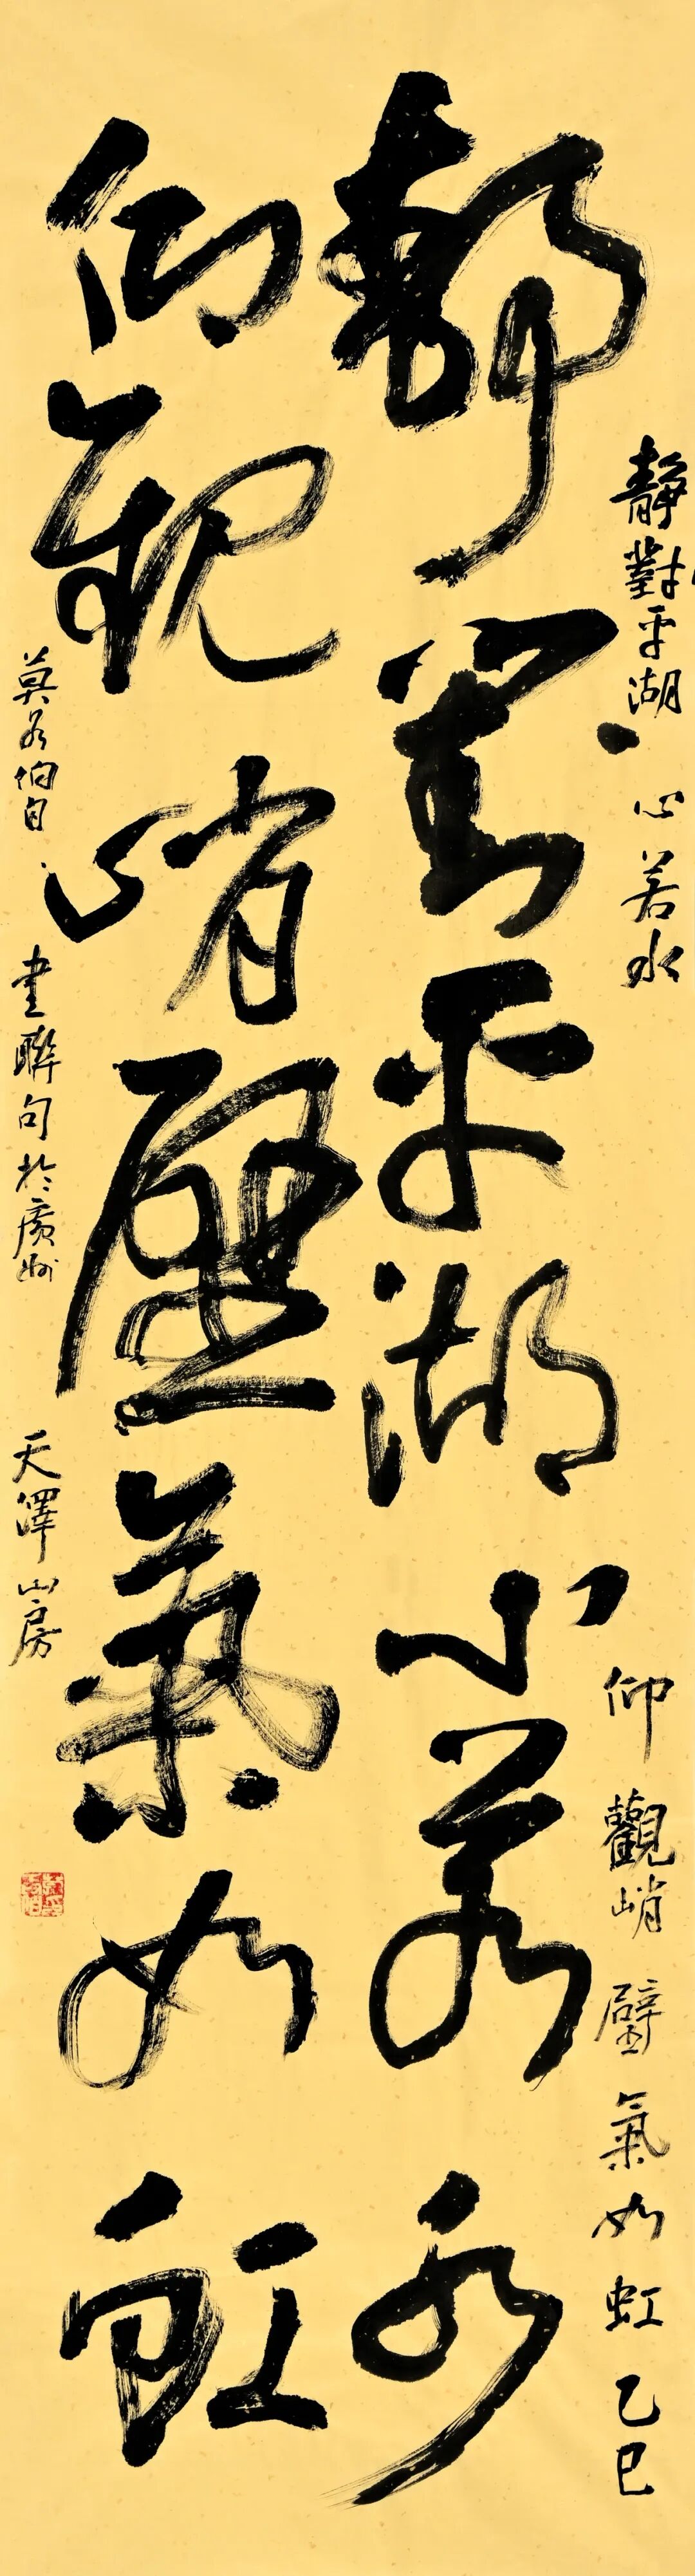 靜對平湖心若水
仰觀峭壁氣如虹
靜對平湖 心若水 仰觀峭壁氣如虹 乙巳
莫各伯自書聯句於廣州 天澤山房